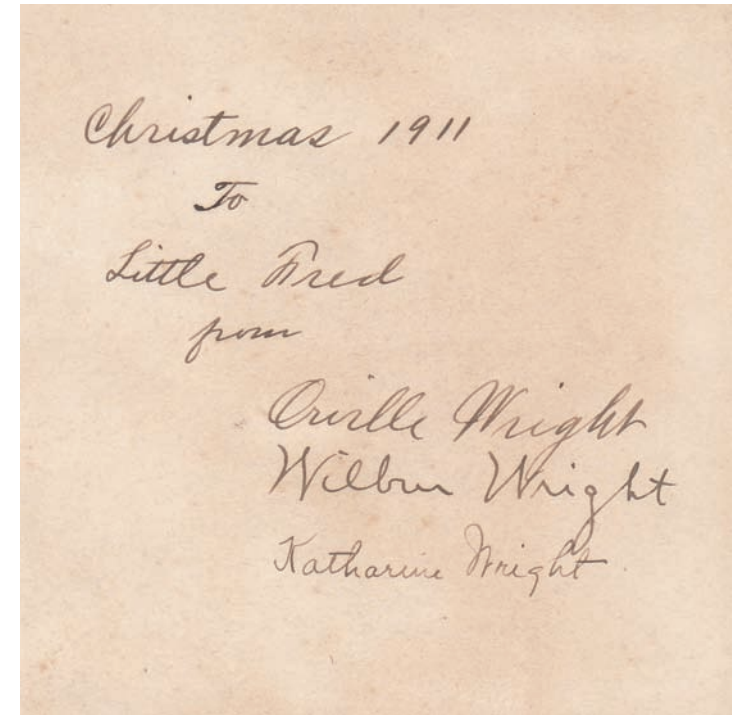 Christmas 1911
To
Little Fred
from
Orville Wright
Wilbur Wright
Katharine Wright